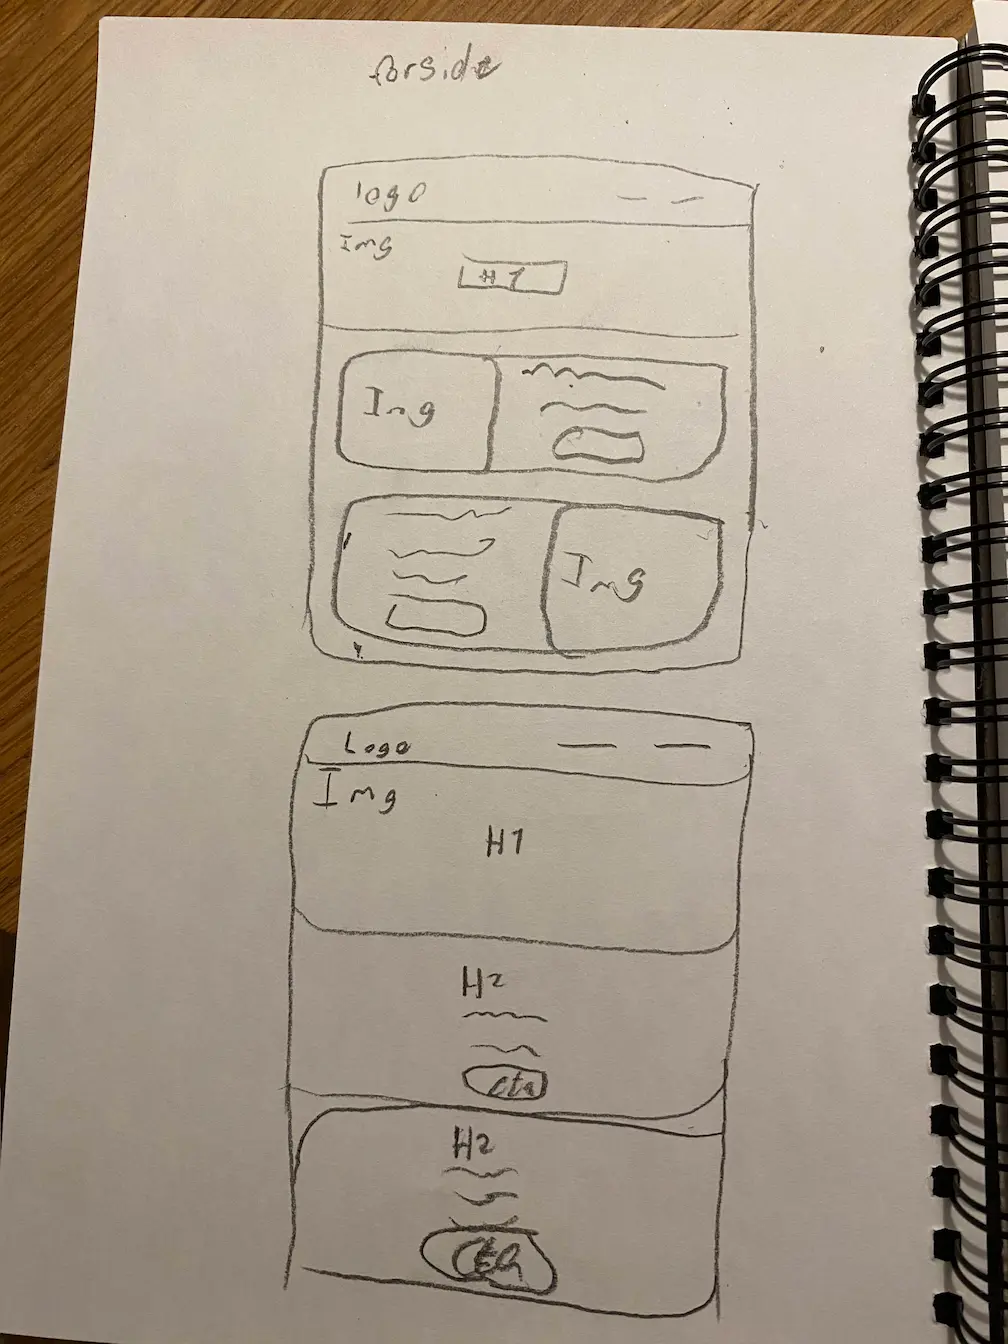 forside
logo
Img
H1
Img
Img
Logo
Img
H1
H2
cta
H2
Cta